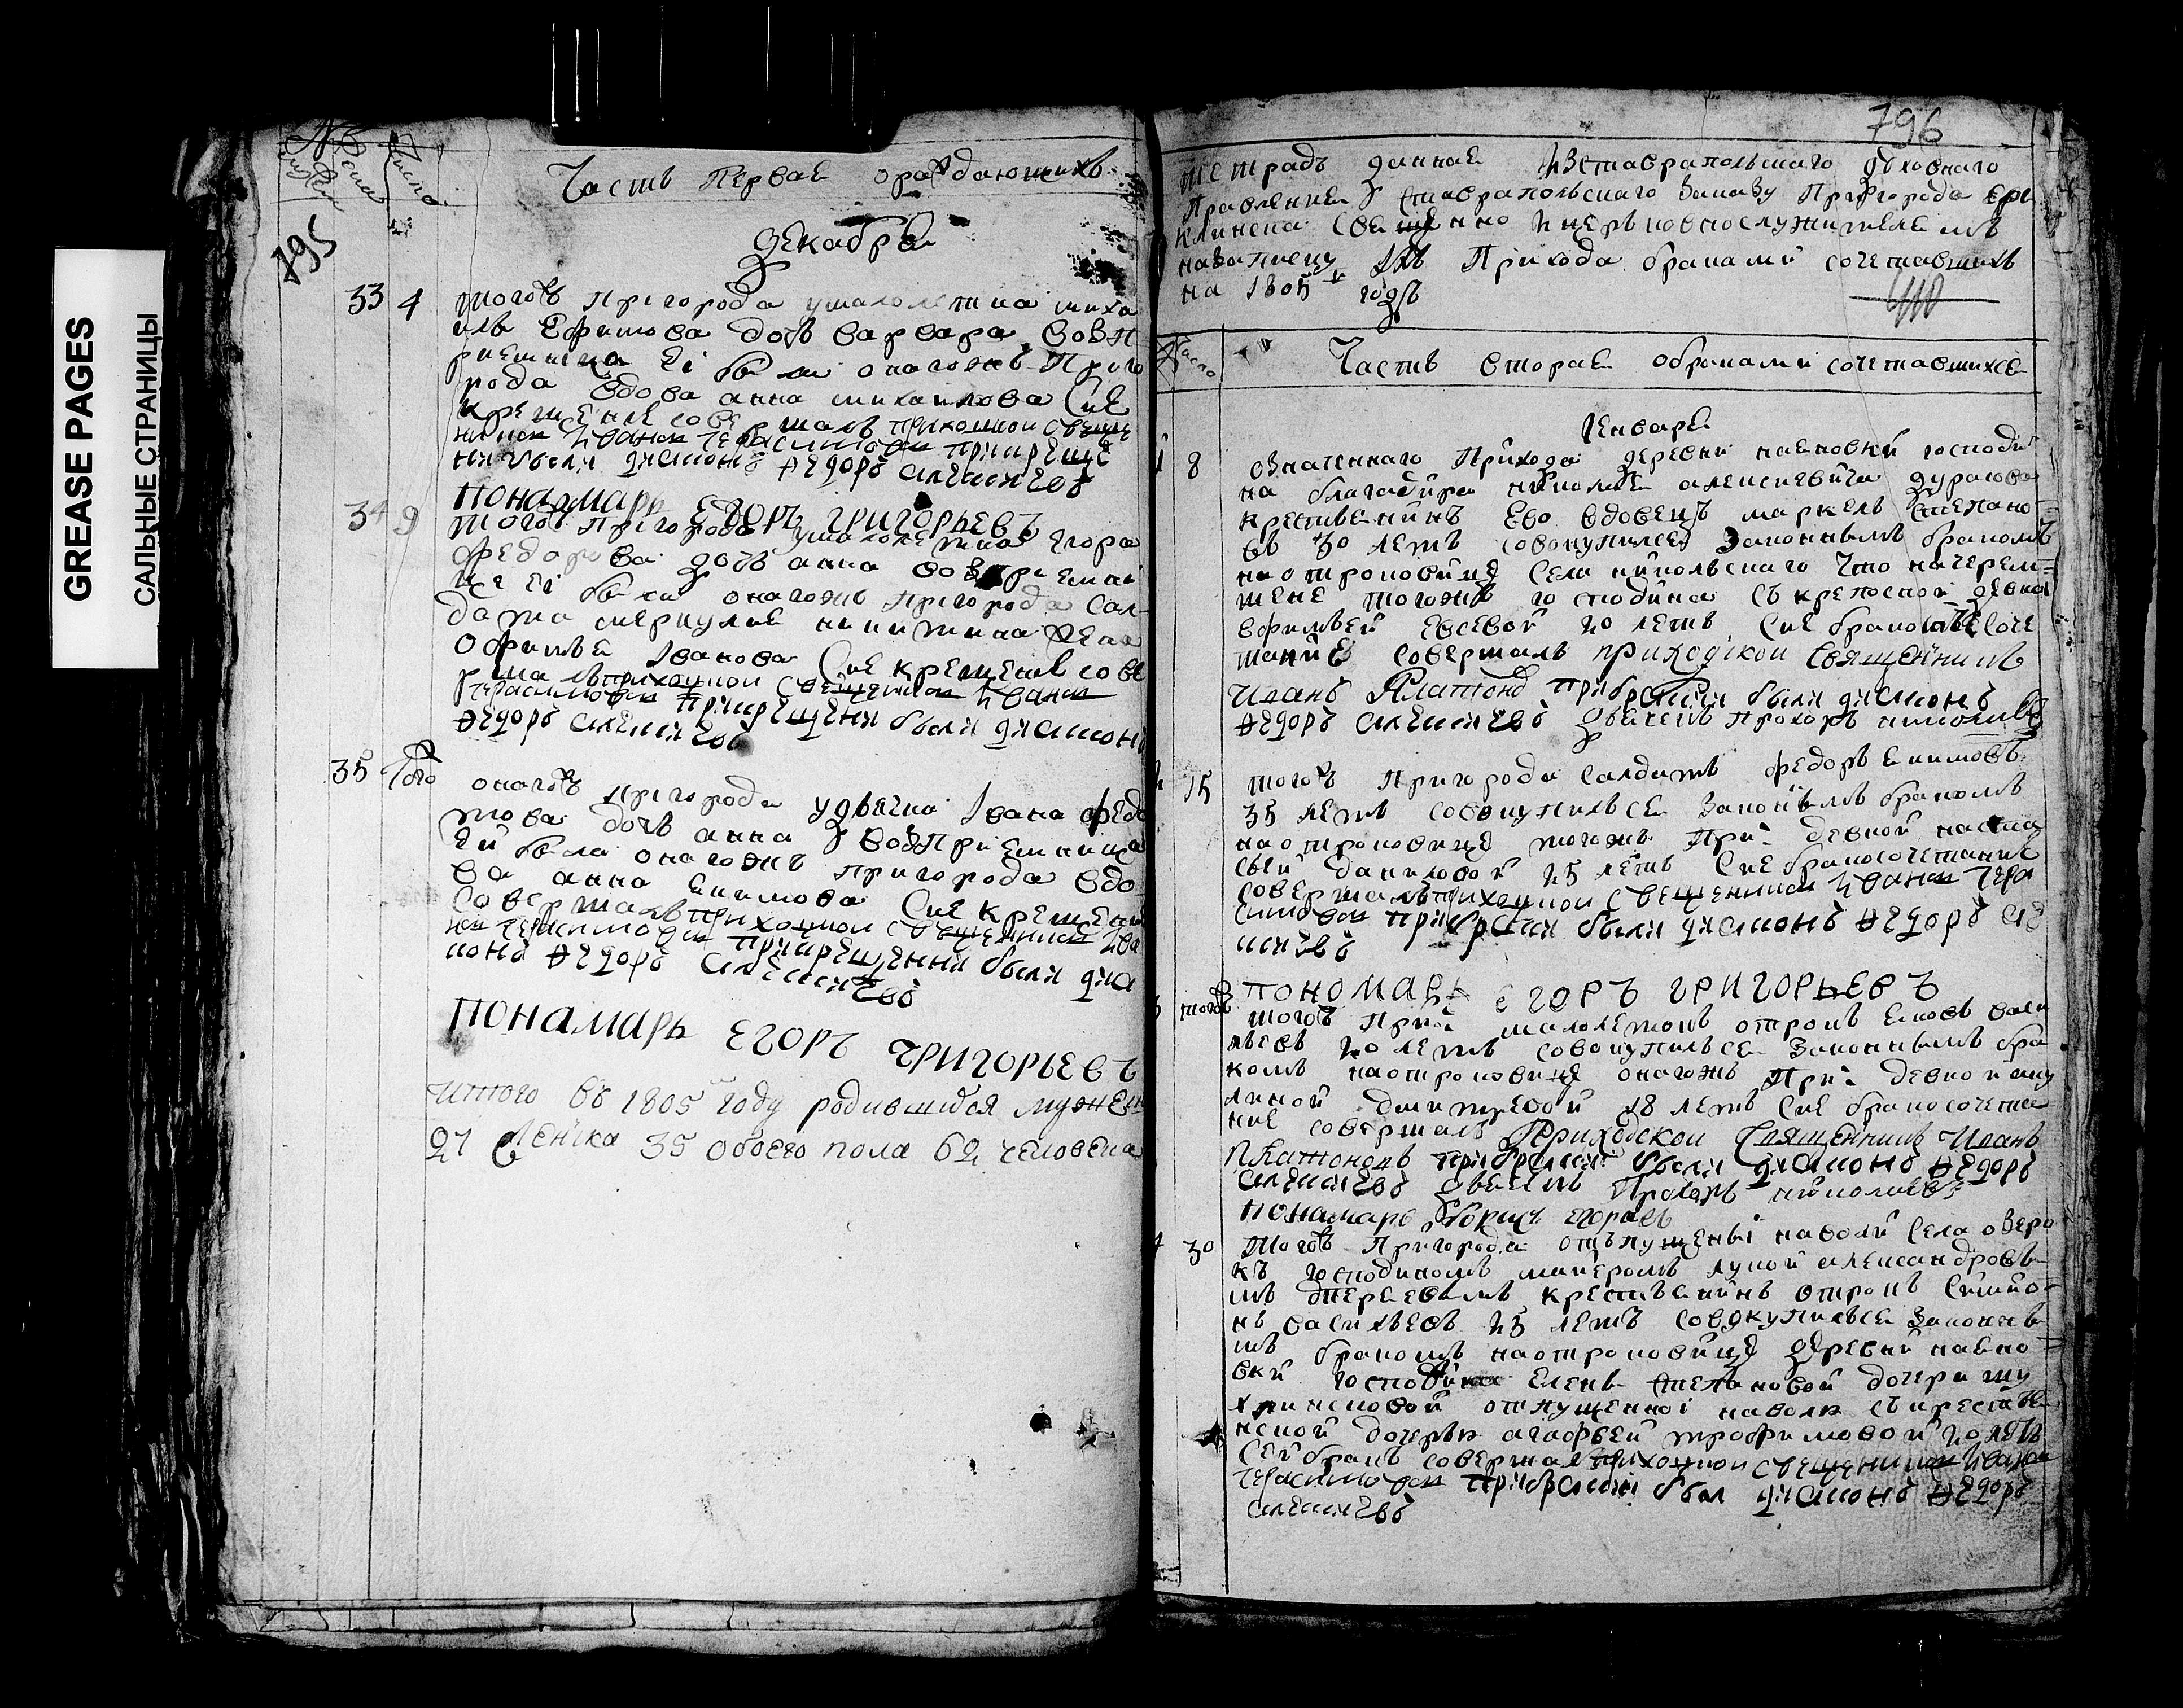 GREASE PAGES
САЛЬНЫЕ СТРАНИЦЫ
795
Число
Часть первая ораждающихъ
Декабря
33 4 тогожъ пригорода умалолетка миха
ила Ефимова дочь варвара восп
риемница ей была оногожъ приго
рода вдова анна михаилова Сие
крещение совершалъ приходкой свеще
нникъ Иванъ Герасимовъ прикреще
нии были диаконъ Федоръ Алексеевъ
понамарь егоръ григорьевъ
34 9 тогожъ пригорода умалолетка егора
федорова дочь анна восприемни
ца ей была оногожъ пригорода сал
дата меркулия никитина жена
офимья Иванова Сие крещение сове
ршалъ приходкой свещеникъ Иванъ
Герасимовъ прикрещени были диаконъ
Федоръ Алексеевъ
35 того оногожъ пригорода удьячка Ивана федо
това дочь анна восприемница
ей была оногожъ пригорода вдо
ва анна екимова Сие крещение
совершалъ приходкой свещенникъ Ива
нъ Герасимовъ прикрещении были диа
конъ Федоръ Алексеевъ
понамарь егоръ григорьевъ
итого въ 1805 году родившихся мужеск
27 женска 35 обоего пола 62 человека
796
тетрадь данная Изставрапольскаго духовнаго
правления ставрапольскаго уезду пригорода ере
клинска свещенно и церьковнослужителемъ
назаписку ихъ прихода браками сочетавшихъ
на 1805 й годъ
Число
Часть вторая обраками сочетавшихся
Генваря
1 8 означеннаго прихода деревни наяновки господи
на благадира николая алексиевича дурасова
крестьянинъ ево вдовецъ маркелъ степано
въ 30 летъ совокупился законнымъ бракомъ
наотроковице села никольскаго что начерем=
шене тогожъ господина съкрепосной девкой
евфимьей евсевой 20 летъ Сие бракосоче
тание совершалъ приходской священникъ
Иванъ Платоновъ прибраки были диаконъ
Федоръ Алексеевъ дьячекъ прохоръ николаевъ
2 15 тогожъ пригорода салдатъ федоръ екимовъ
35 летъ совокупилься законымъ бракомъ
наотроковице тогожъ при: девкой наста
сьей даниловой 25 летъ Сие бракосочетание
совершалъ приходкой свещенникъ Иванъ Гера
симовъ прибраки были диаконъ Федоръ Але
ксеевъ
пономарь егоръ григорьевъ
3 тогожъ тогожъ при: малолетокъ отрокъ васи
льевъ 20 летъ совокупилься законнымъ бра
комъ наотроковице оногожъ при: девкой аку
линой дмитревой 18 летъ Сие бракосочета
ние совершалъ Приходской Священникъ Иванъ
Платоновъ прибраки были диаконъ Федоръ
Алексеевъ дьячекъ Прохоръ николаевъ
понамарь егоръ
4 30 тогожъ пригорода отпущены наволи села озеро
къ господиномъ маиеромъ лукой александровы
мъ крестьянинъ отрокъ симио-
нъ васильевъ 25 летъ совокупилься законны
мъ бракомъ наотроковице деревни наяно=
вки госпожи елены степановой дочери
отпущенной наволю съкрестья
нской дочерью агафьей трофимовой 20 летъ
Сей бракъ совершалъ приходкой свещенникъ Иванъ
Герасимовъ прибраки был диаконъ Федоръ
Алексеевъ